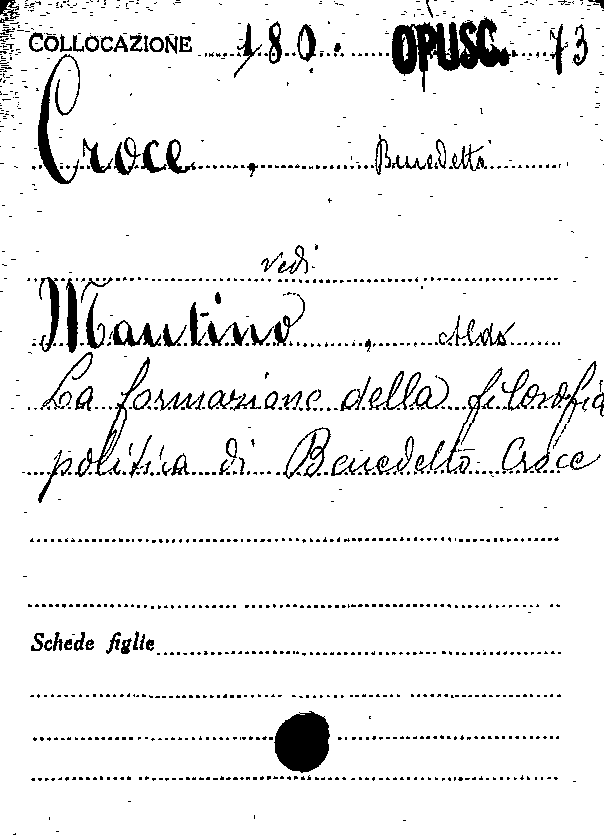 COLLOCAZIONE 180. OPUSC. 73
Croce, Benedetto
vedi
Mautino, Aldo
La formazione della filosofia
politica di Benedetto Croce
Schede figlie